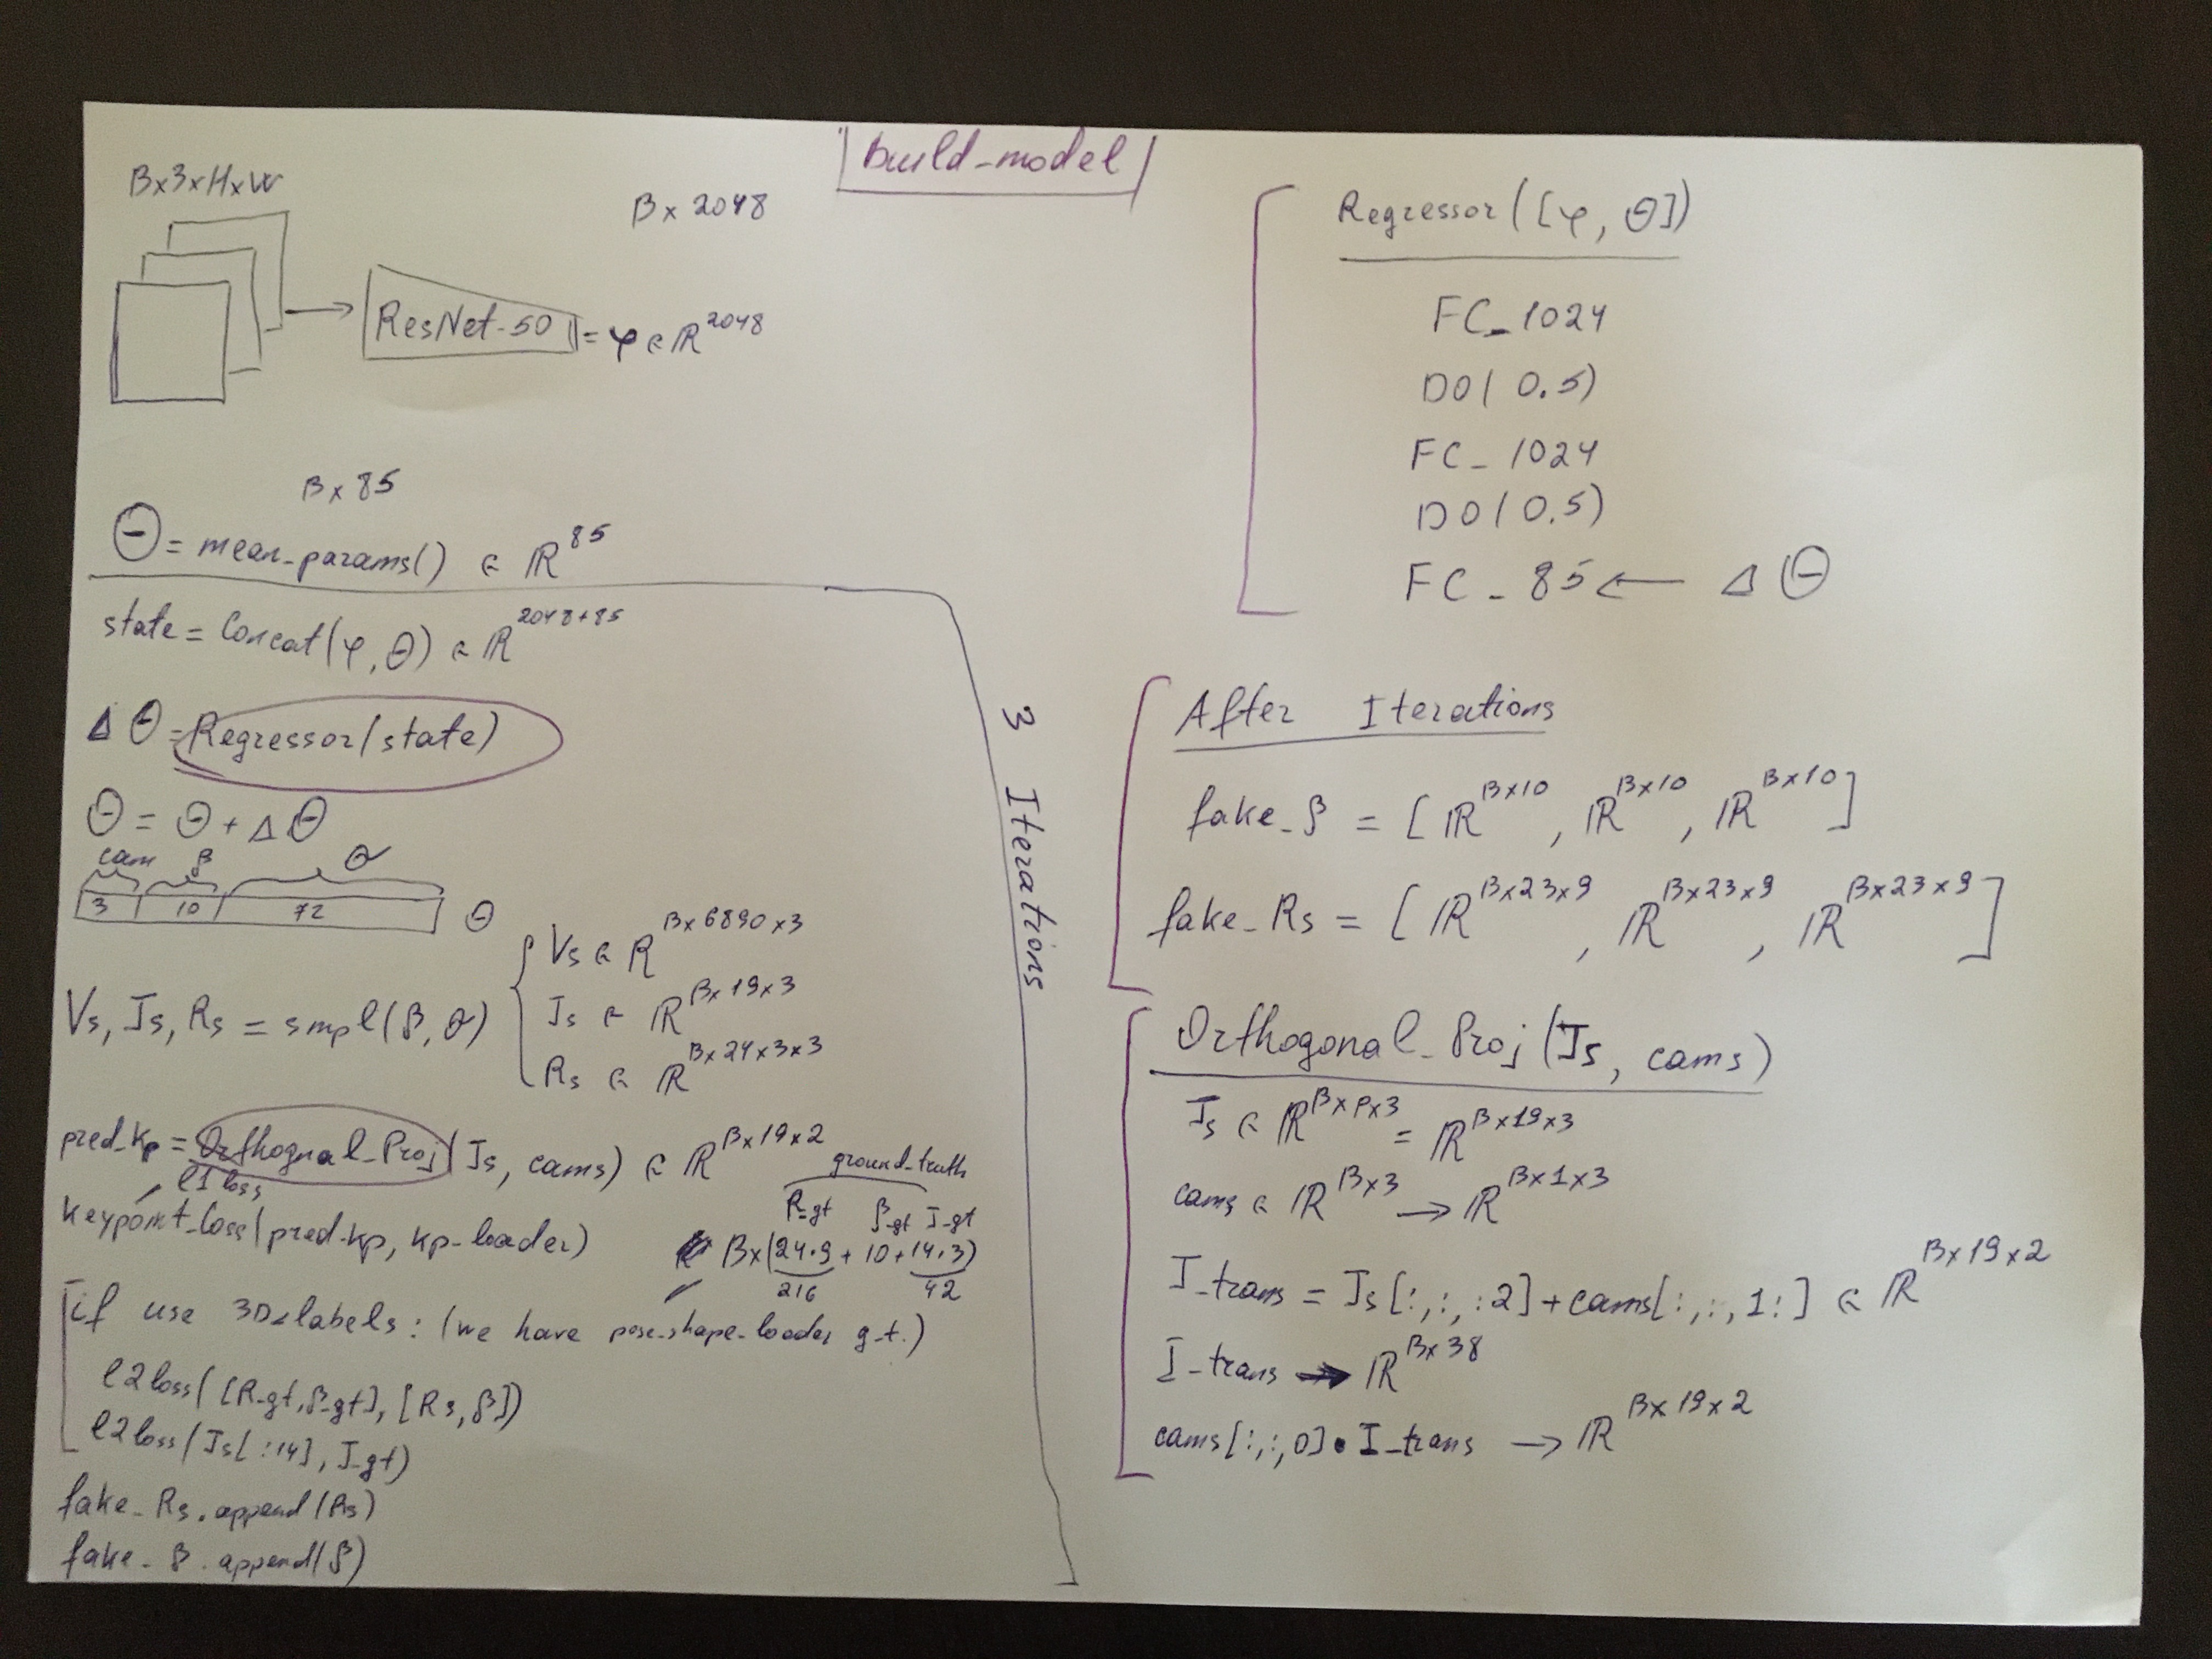 Build-model
B×3×H×W
B×2048
ResNet-50 = φ ∈ ℝ^2048
B×85
Θ = mean-params() ∈ ℝ^85
state = Concat(φ, Θ) ∈ ℝ^2048+85
ΔΘ = Regressor(state)
Θ = Θ + ΔΘ
cam β θ
3 10 72 Θ
Vs, Js, Rs = smpl(β, θ)
Vs ∈ ℝ^B×6890×3
Js ∈ ℝ^B×19×3
Rs ∈ ℝ^B×24×3×3
pred-kp = Orthognal-Proj(Js, cams) ∈ ℝ^B×19×2
l1 loss
keypoint-loss(pred-kp, kp-loader)
ground-truth
R-gt β-gt J-gt
B×(24·9 + 10 + 14·3)
216 42
if use 3D-labels: (we have pose-shape-loader g-t.)
l2loss([R-gt, β-gt], [Rs, β])
l2loss(Js[:14], J-gt)
fake-Rs.append(Rs)
fake-β.append(β)
3 Iterations
Regressor([φ, Θ])
FC-1024
DO(0.5)
FC-1024
DO(0.5)
FC-85 ← ΔΘ
After Iterations
fake-β = [ℝ^B×10, ℝ^B×10, ℝ^B×10]
fake-Rs = [ℝ^B×23×9, ℝ^B×23×9, ℝ^B×23×9]
Orthogonal-Proj(Js, cams)
Js ∈ ℝ^B×P×3 = ℝ^B×19×3
cams ∈ ℝ^B×3 → ℝ^B×1×3
J-trans = Js[:,:,:2] + cams[:,:,1:] ∈ ℝ^B×19×2
J-trans → ℝ^B×38
cams[:,:,0] • J-trans → ℝ^B×19×2